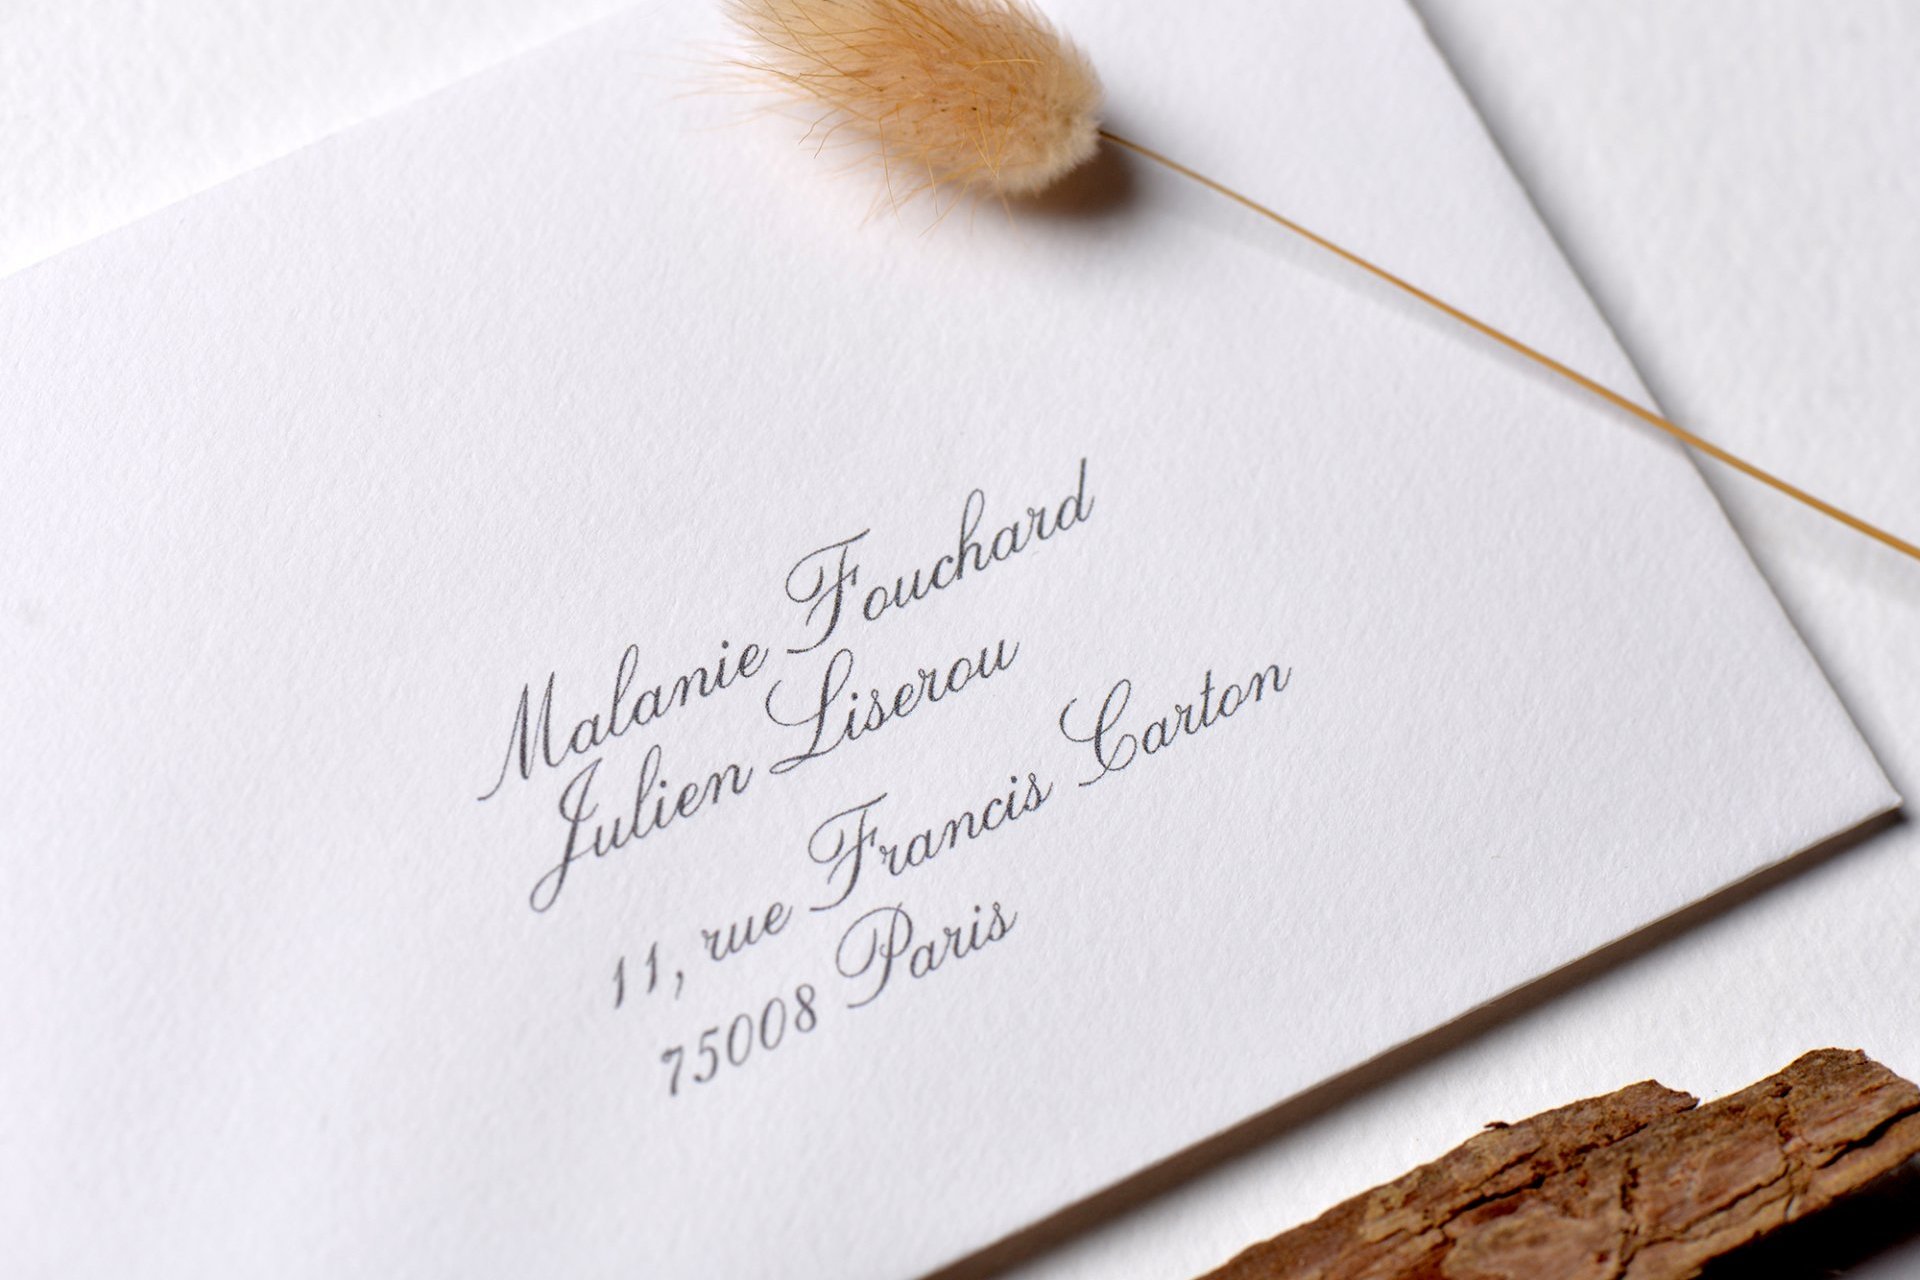 Malanie Fouchard
Julien Liserou
11, rue Francis Carton
75008 Paris